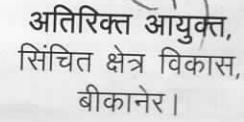 अतिरिक्त आयुक्त,
सिंचित क्षेत्र विकास,
बीकानेर।